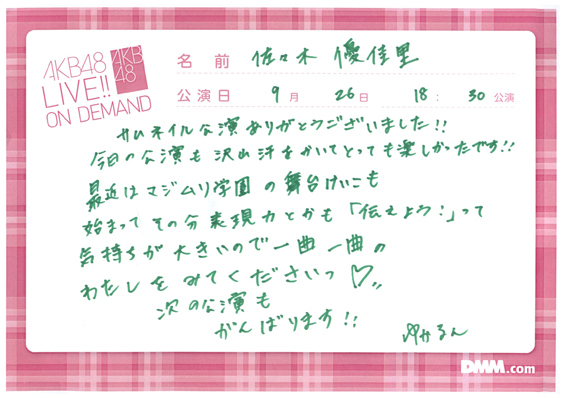 AKB48
LIVE!!
ON DEMAND
AKB
48
名前 佐々木 優佳里
公演日 9月 26日 18: 30公演
サムネイル公演ありがとうございました!!
今日の公演も沢山汗をかいてとっても楽しかったです!!
最近はマジムリ学園の舞台けいこも
始まってその分表現力とかも「伝えよう!」って
気持ちが大きいので一曲一曲の
わたしをみてくださいっ♡,,
次の公演も
がんばります!!
ゆかるん
DMM.com